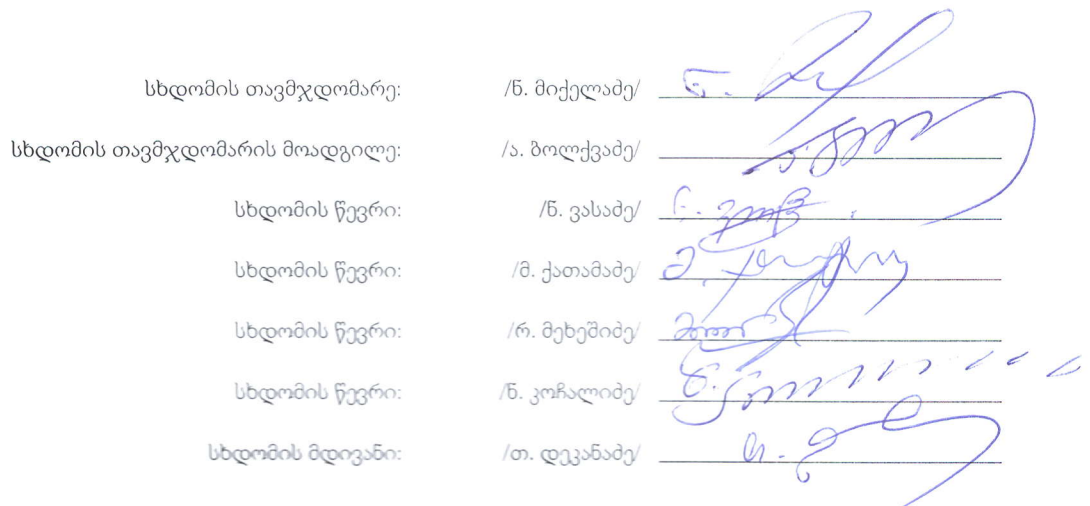 სხდომის თავმჯდომარე: /ნ. მიქელაძე/
სხდომის თავმჯდომარის მოადგილე: /ა. ბოლქვაძე/
სხდომის წევრი: /ნ. ვასაძე/
სხდომის წევრი: /მ. ქათამაძე/
სხდომის წევრი: /რ. მეხეშიძე/
სხდომის წევრი: /ნ. კოჩალიძე/
სხდომის მდივანი: /თ. დეკანაძე/